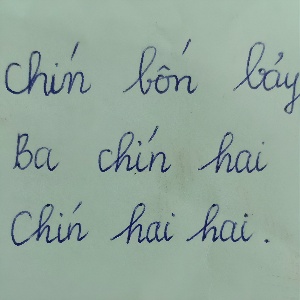 Chín bốn bảy
Ba chín hai
Chín hai hai.